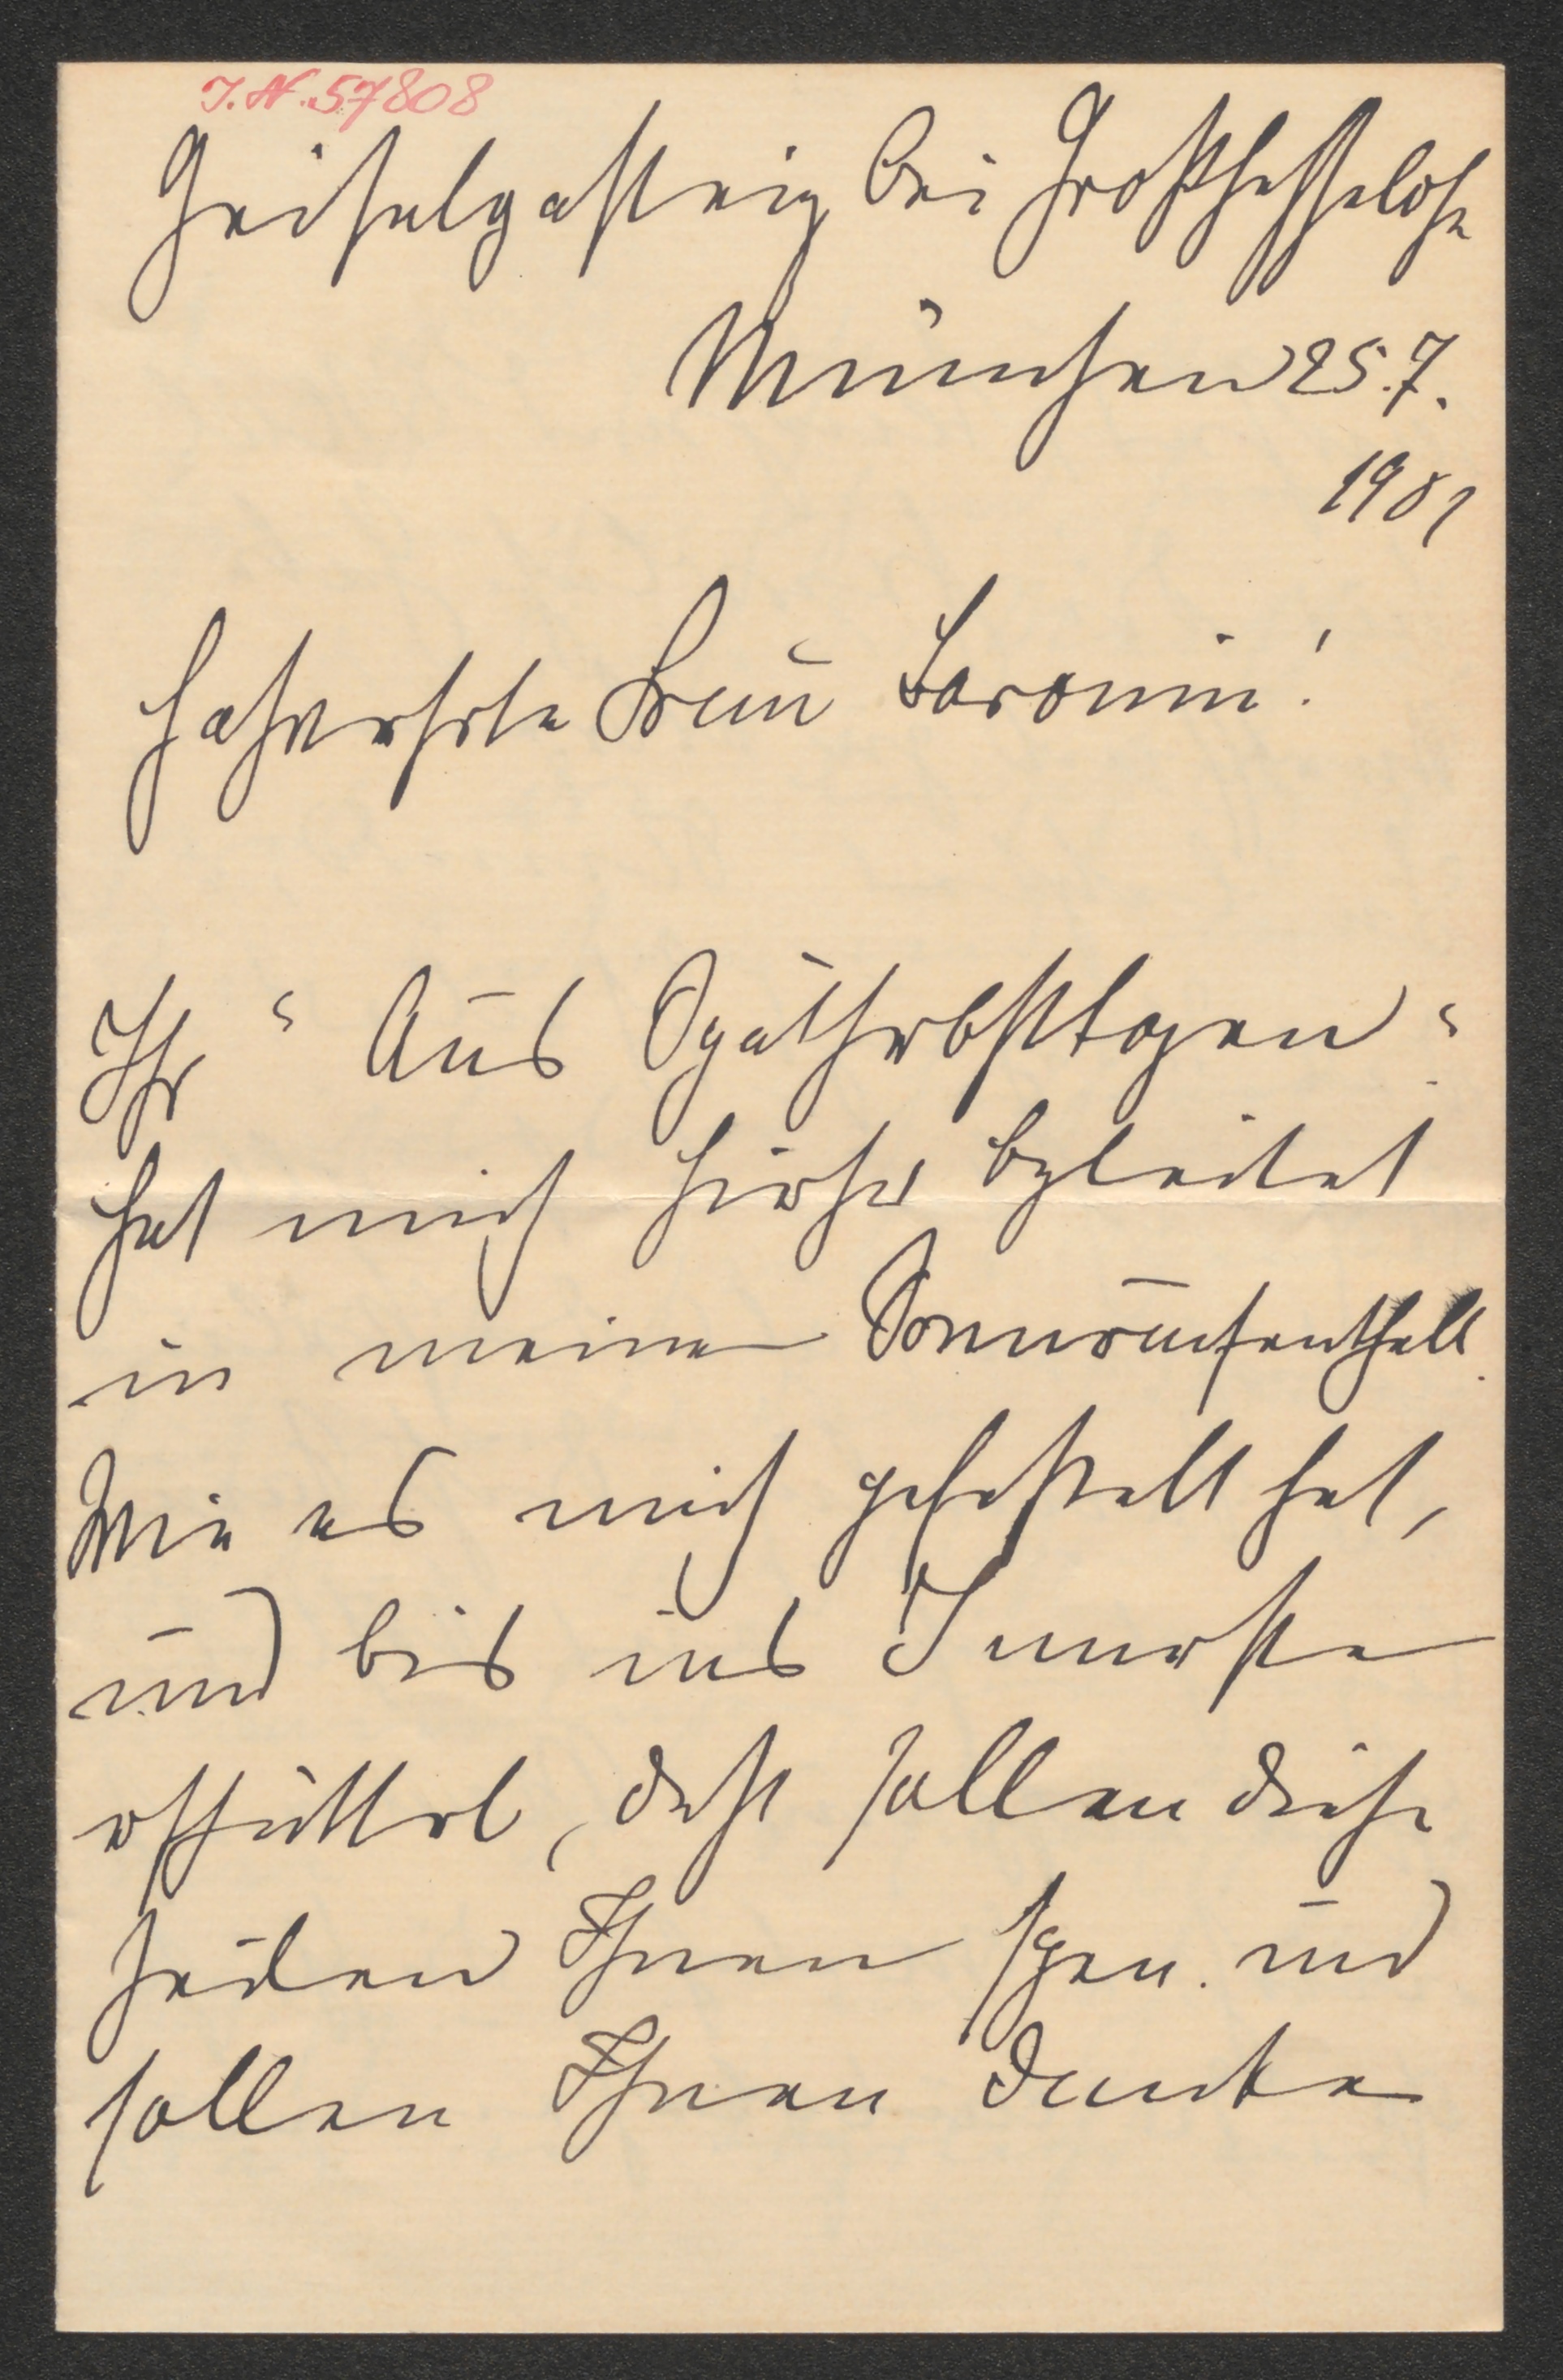 I.N. 57808
Geiselgasteig bei Großhesselohe
München 25.7.
1901
Hochverehrte Frau Baronin!
Ihr "Aus Spätherbsttagen"
hat mich hierher begleitet
in meinen Sommeraufenthalt.
Wie es mich gefesselt hat,
und bis ins Innerste
erschüttert, das sollen diese
Zeilen Ihnen sagen und
sollen Ihnen danken